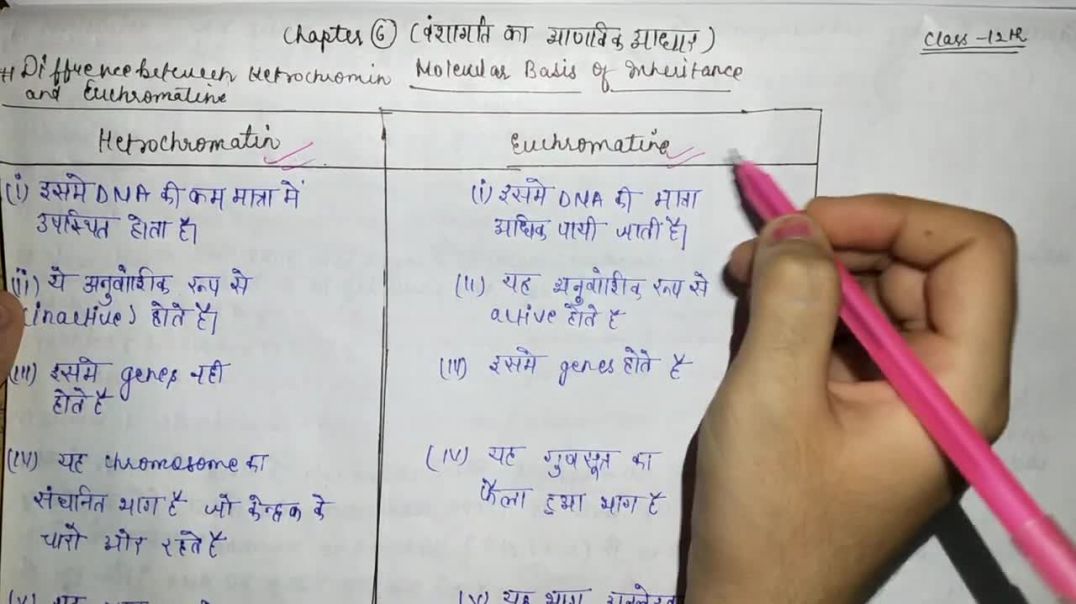 Chapter ⑥ (वंशागति का आणविक आधार)
Class -12th
# Difference between Hetrochromin
Molecular Basis of Inheritance
and Euchromatine
Hetrochromatin
Euchromatine
(i) इसमे DNA की कम मात्रा में
उपस्थित होता है।
(ii) ये अनुवांशिक रूप से
(inactive) होते है।
(iii) इसमे genes नही
होते है
(iv) यह chromosome का
संघनित भाग है जो केन्द्रक के
चारो ओर रहते है
(i) इसमे DNA की मात्रा
अधिक पायी जाती है।
(ii) यह अनुवांशिक रूप से
active होते है
(iii) इसमे genes होते है
(iv) यह गुणसूत्र का
फैला हुआ भाग है
(v) यह भाग